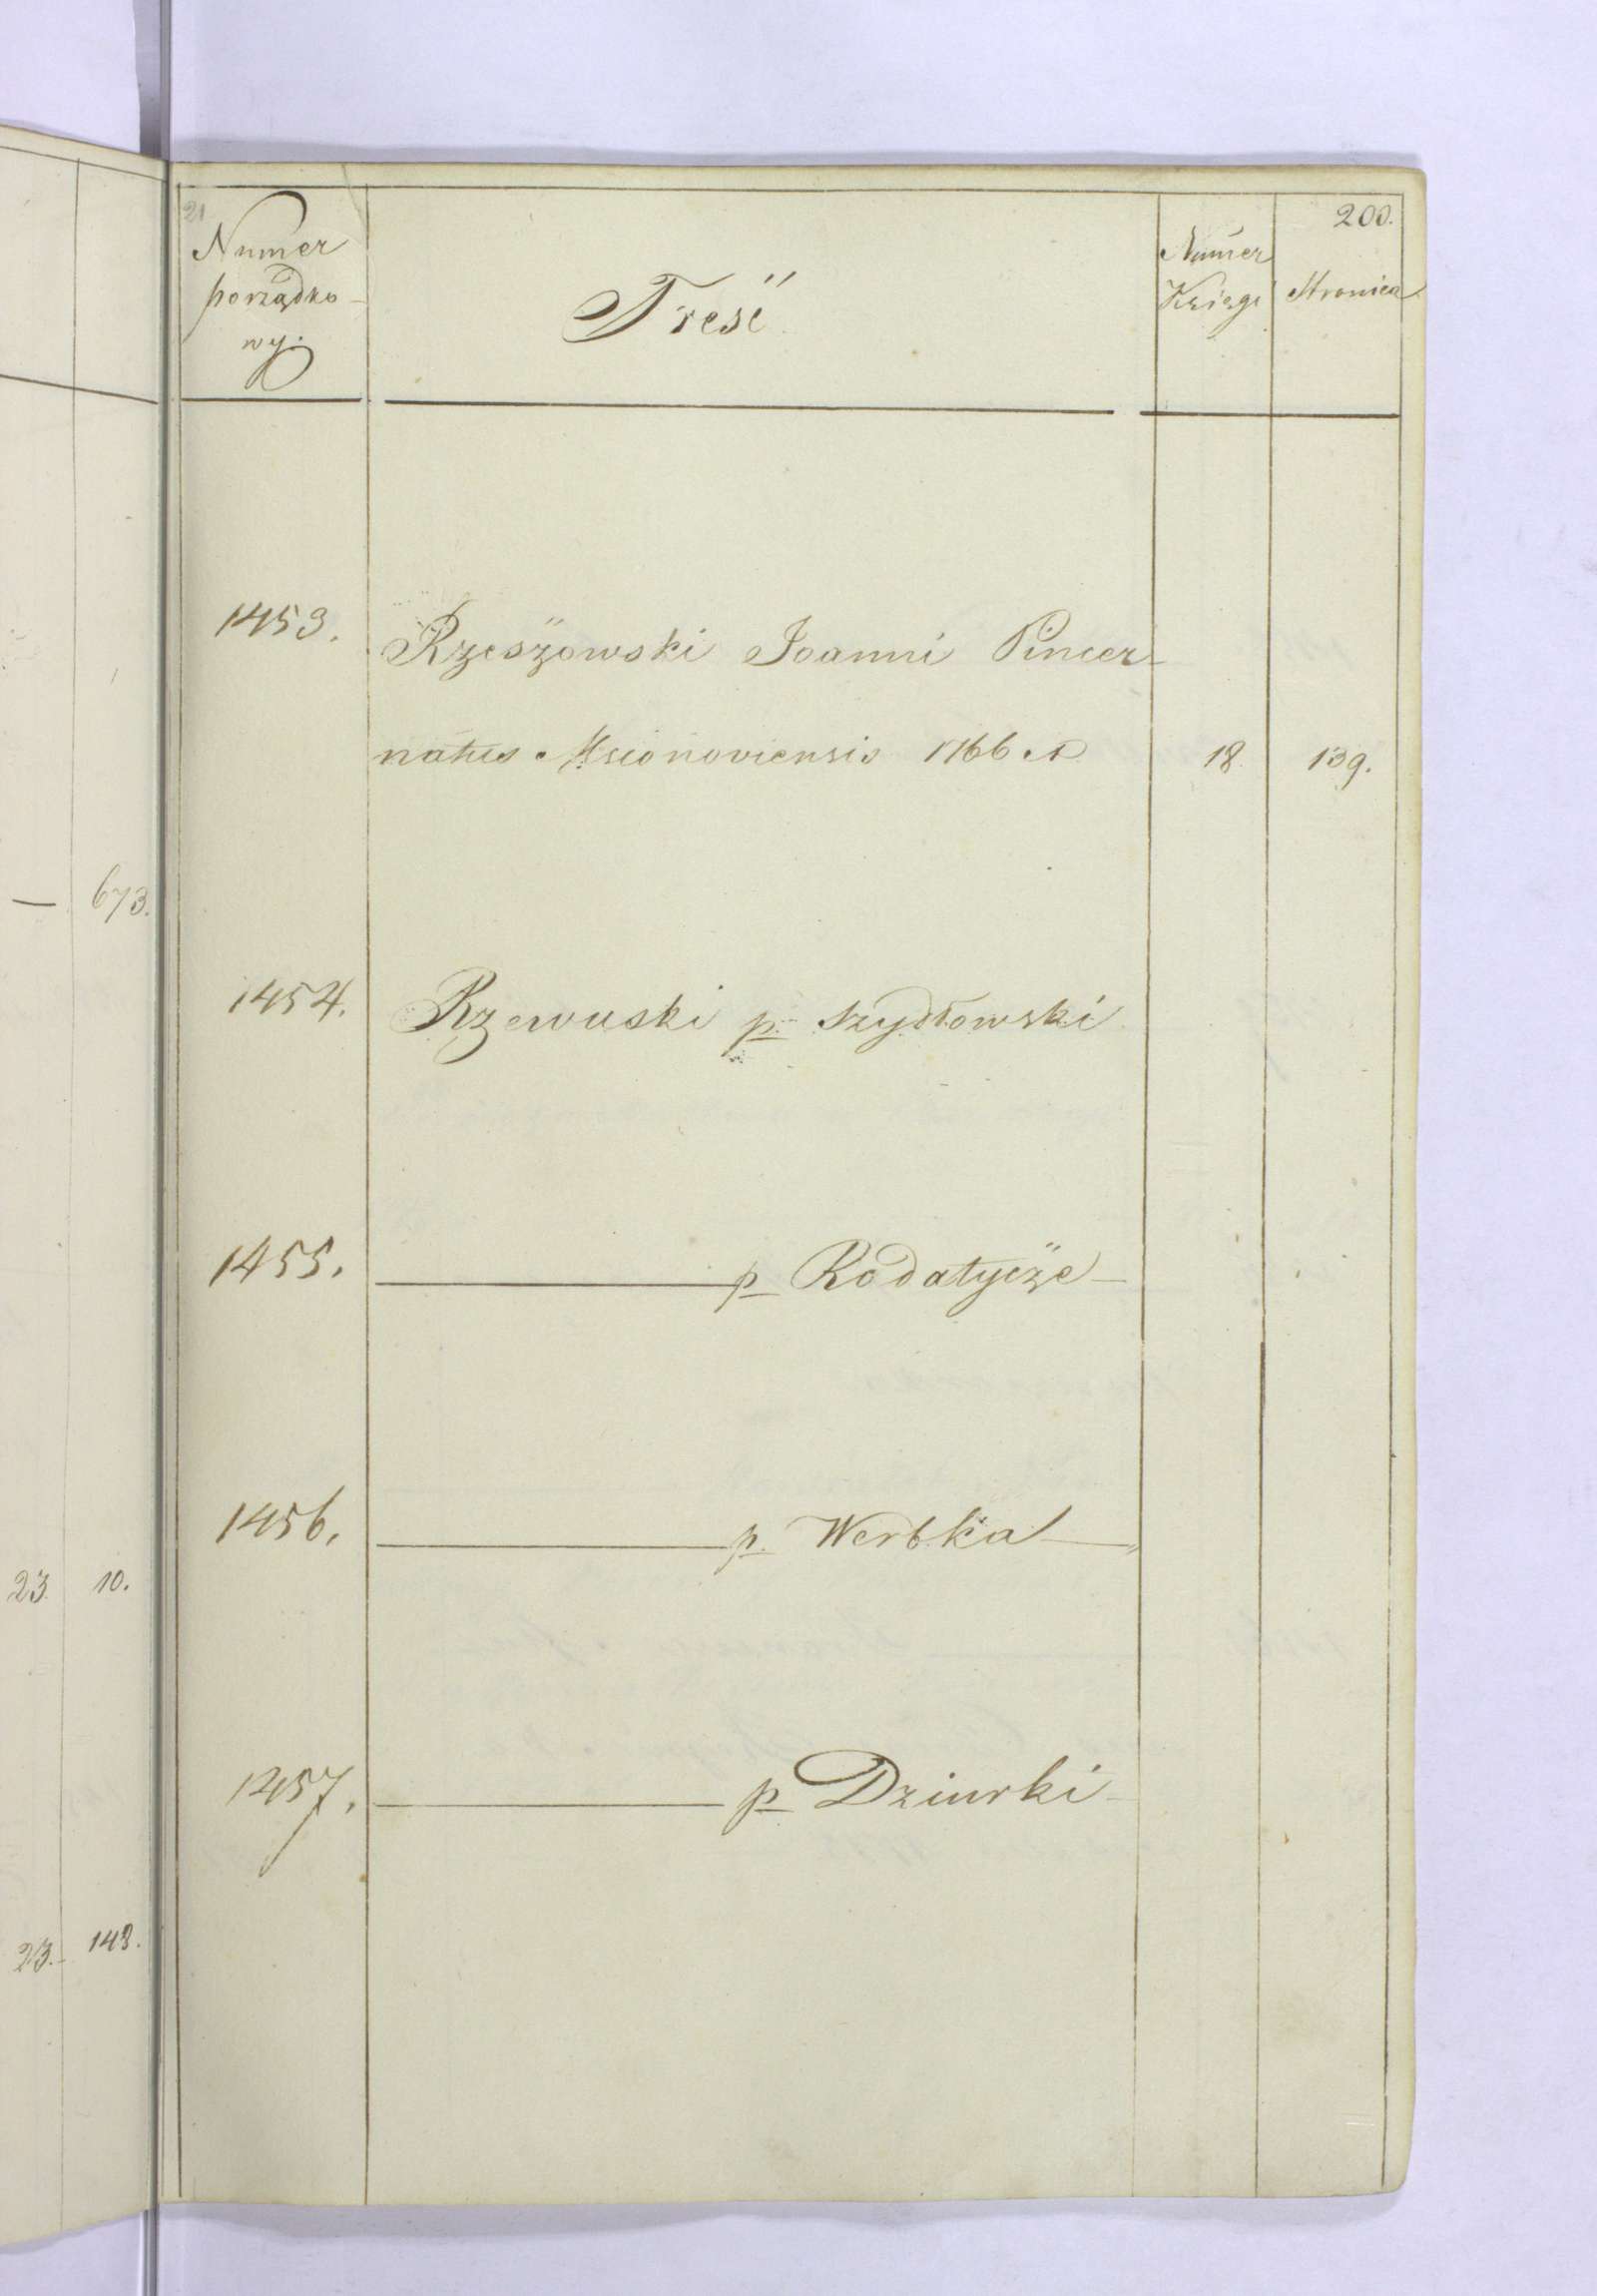 21
200.
Numer
porządko-
wy.
Treść
Numer
Księgi
Stronica
1453. Rzeszowski Joanni Pincer-
natus Mscionoviensis 1766 18 139.
673.
1454. Rzewuski p Szydłowski
1455. p Rodatycze
1456. p. Werbka
23. 10.
1457. p Dziurki
23. 143.